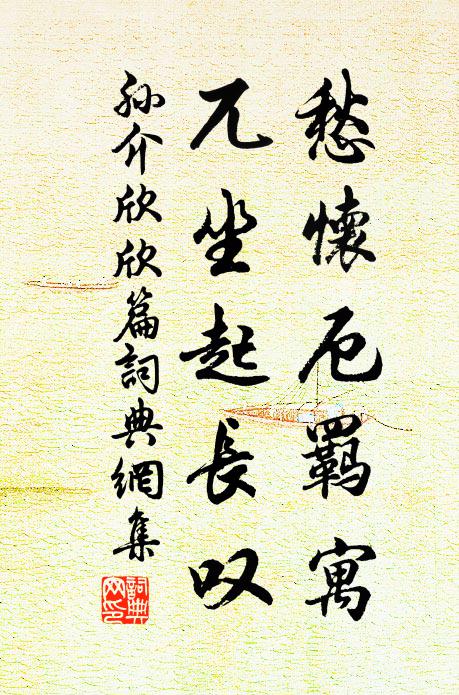 愁懷厄羈寓
兀坐起長叹
孫介欣欣篇詞典網集
詞典
网印